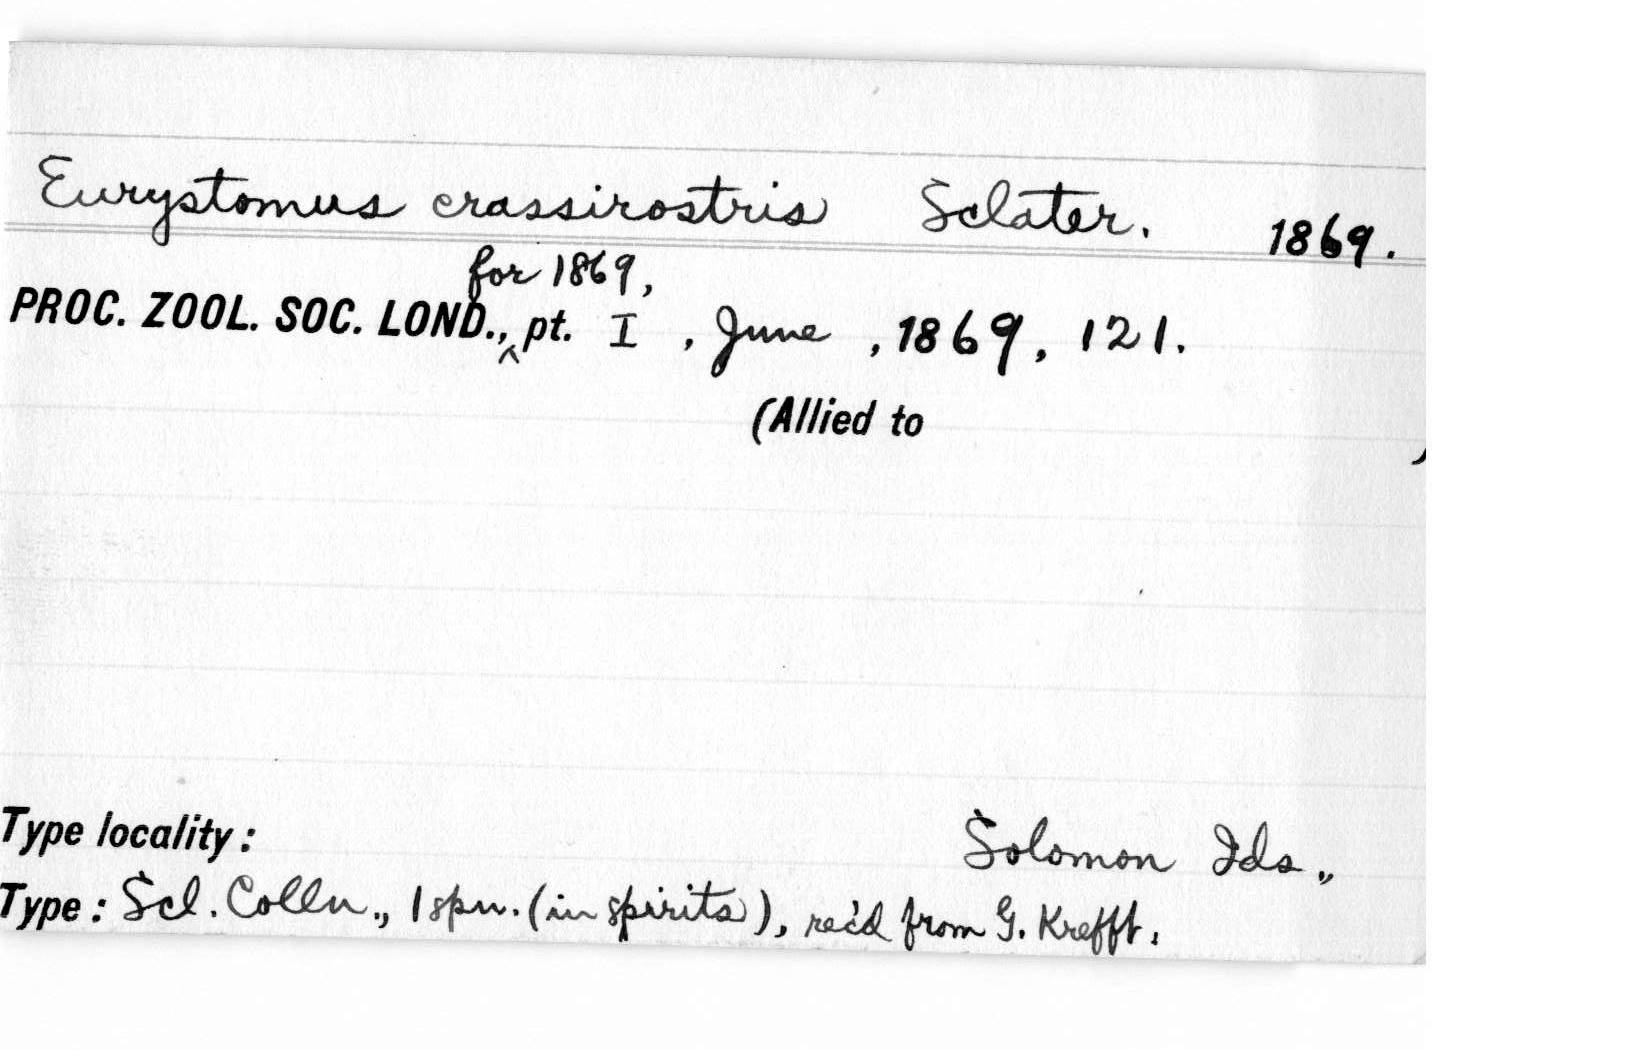 Eurystomus crassirostris Sclater. 1869.
for 1869,
PROC. ZOOL. SOC. LOND., ^ pt. I, June, 1869, 121.
(Allied to )
Type locality: Solomon Ids.,
Type: Scl. Colln., 1 spn. (in spirits), rec'd from G. Krefft.